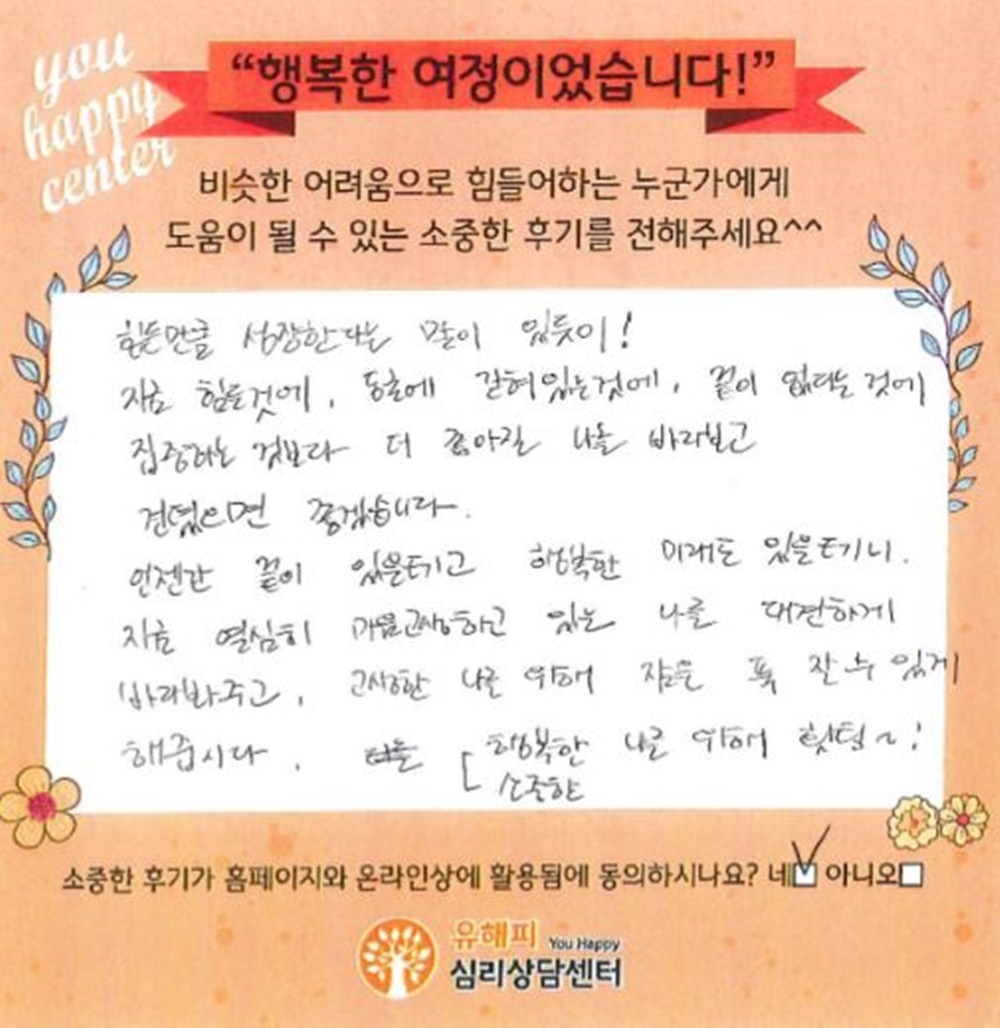 you
happy
center
“행복한 여정이었습니다!”
비슷한 어려움으로 힘들어하는 누군가에게
도움이 될 수 있는 소중한 후기를 전해주세요^^
힘든만큼 성장한다는 말이 있듯이!
지금 힘든것에, 동굴에 갇혀있는것에, 끝이 없다는 것에
집중하는 것보다 더 좋아질 나를 바라보고
견뎠으면 좋겠습니다.
언젠간 끝이 있을테고 행복한 미래도 있을테니.
지금 열심히 마음고생하고 있는 나를 대견하게
바라봐주고, 고생한 나를 위해 잠을 푹 잘 수 있게
해줍시다. 행복한 나를 위해 힛팅~!
소중한
소중한 후기가 홈페이지와 온라인상에 활용됨에 동의하시나요? 네 아니오
유해피 You Happy
심리상담센터